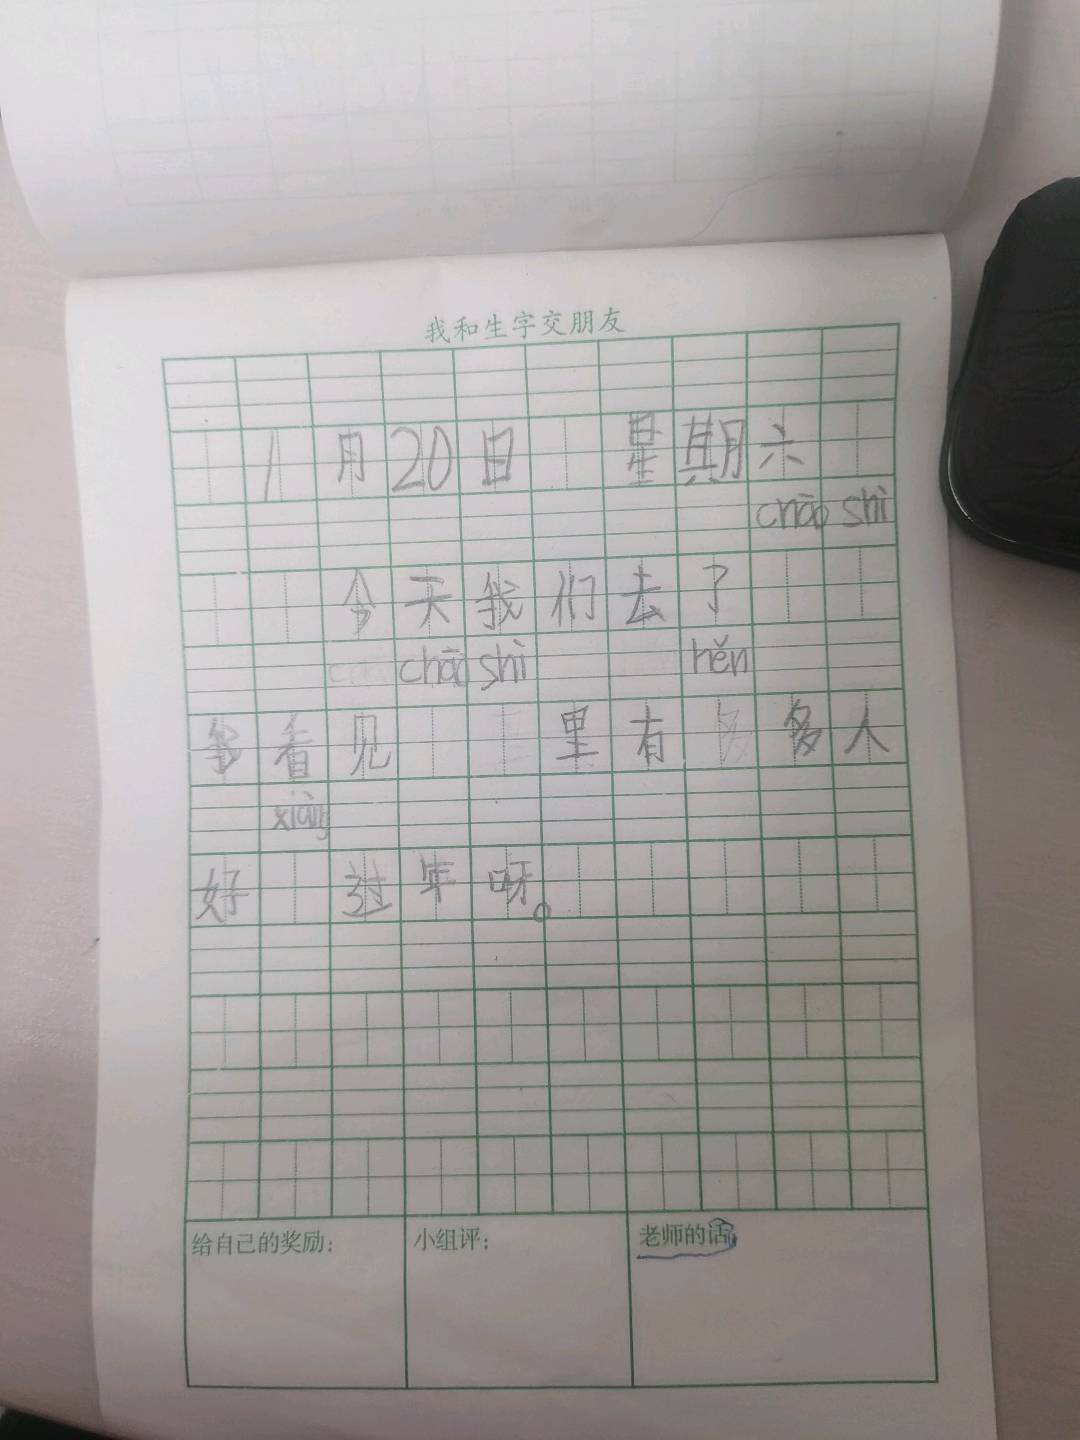 我和生字交朋友
1月20日 星期六
chāo shì
今天我们去了
chāo shì hěn
看见 里有 多人
xiàng
好 过年呀。
给自己的奖励：
小组评：
老师的话